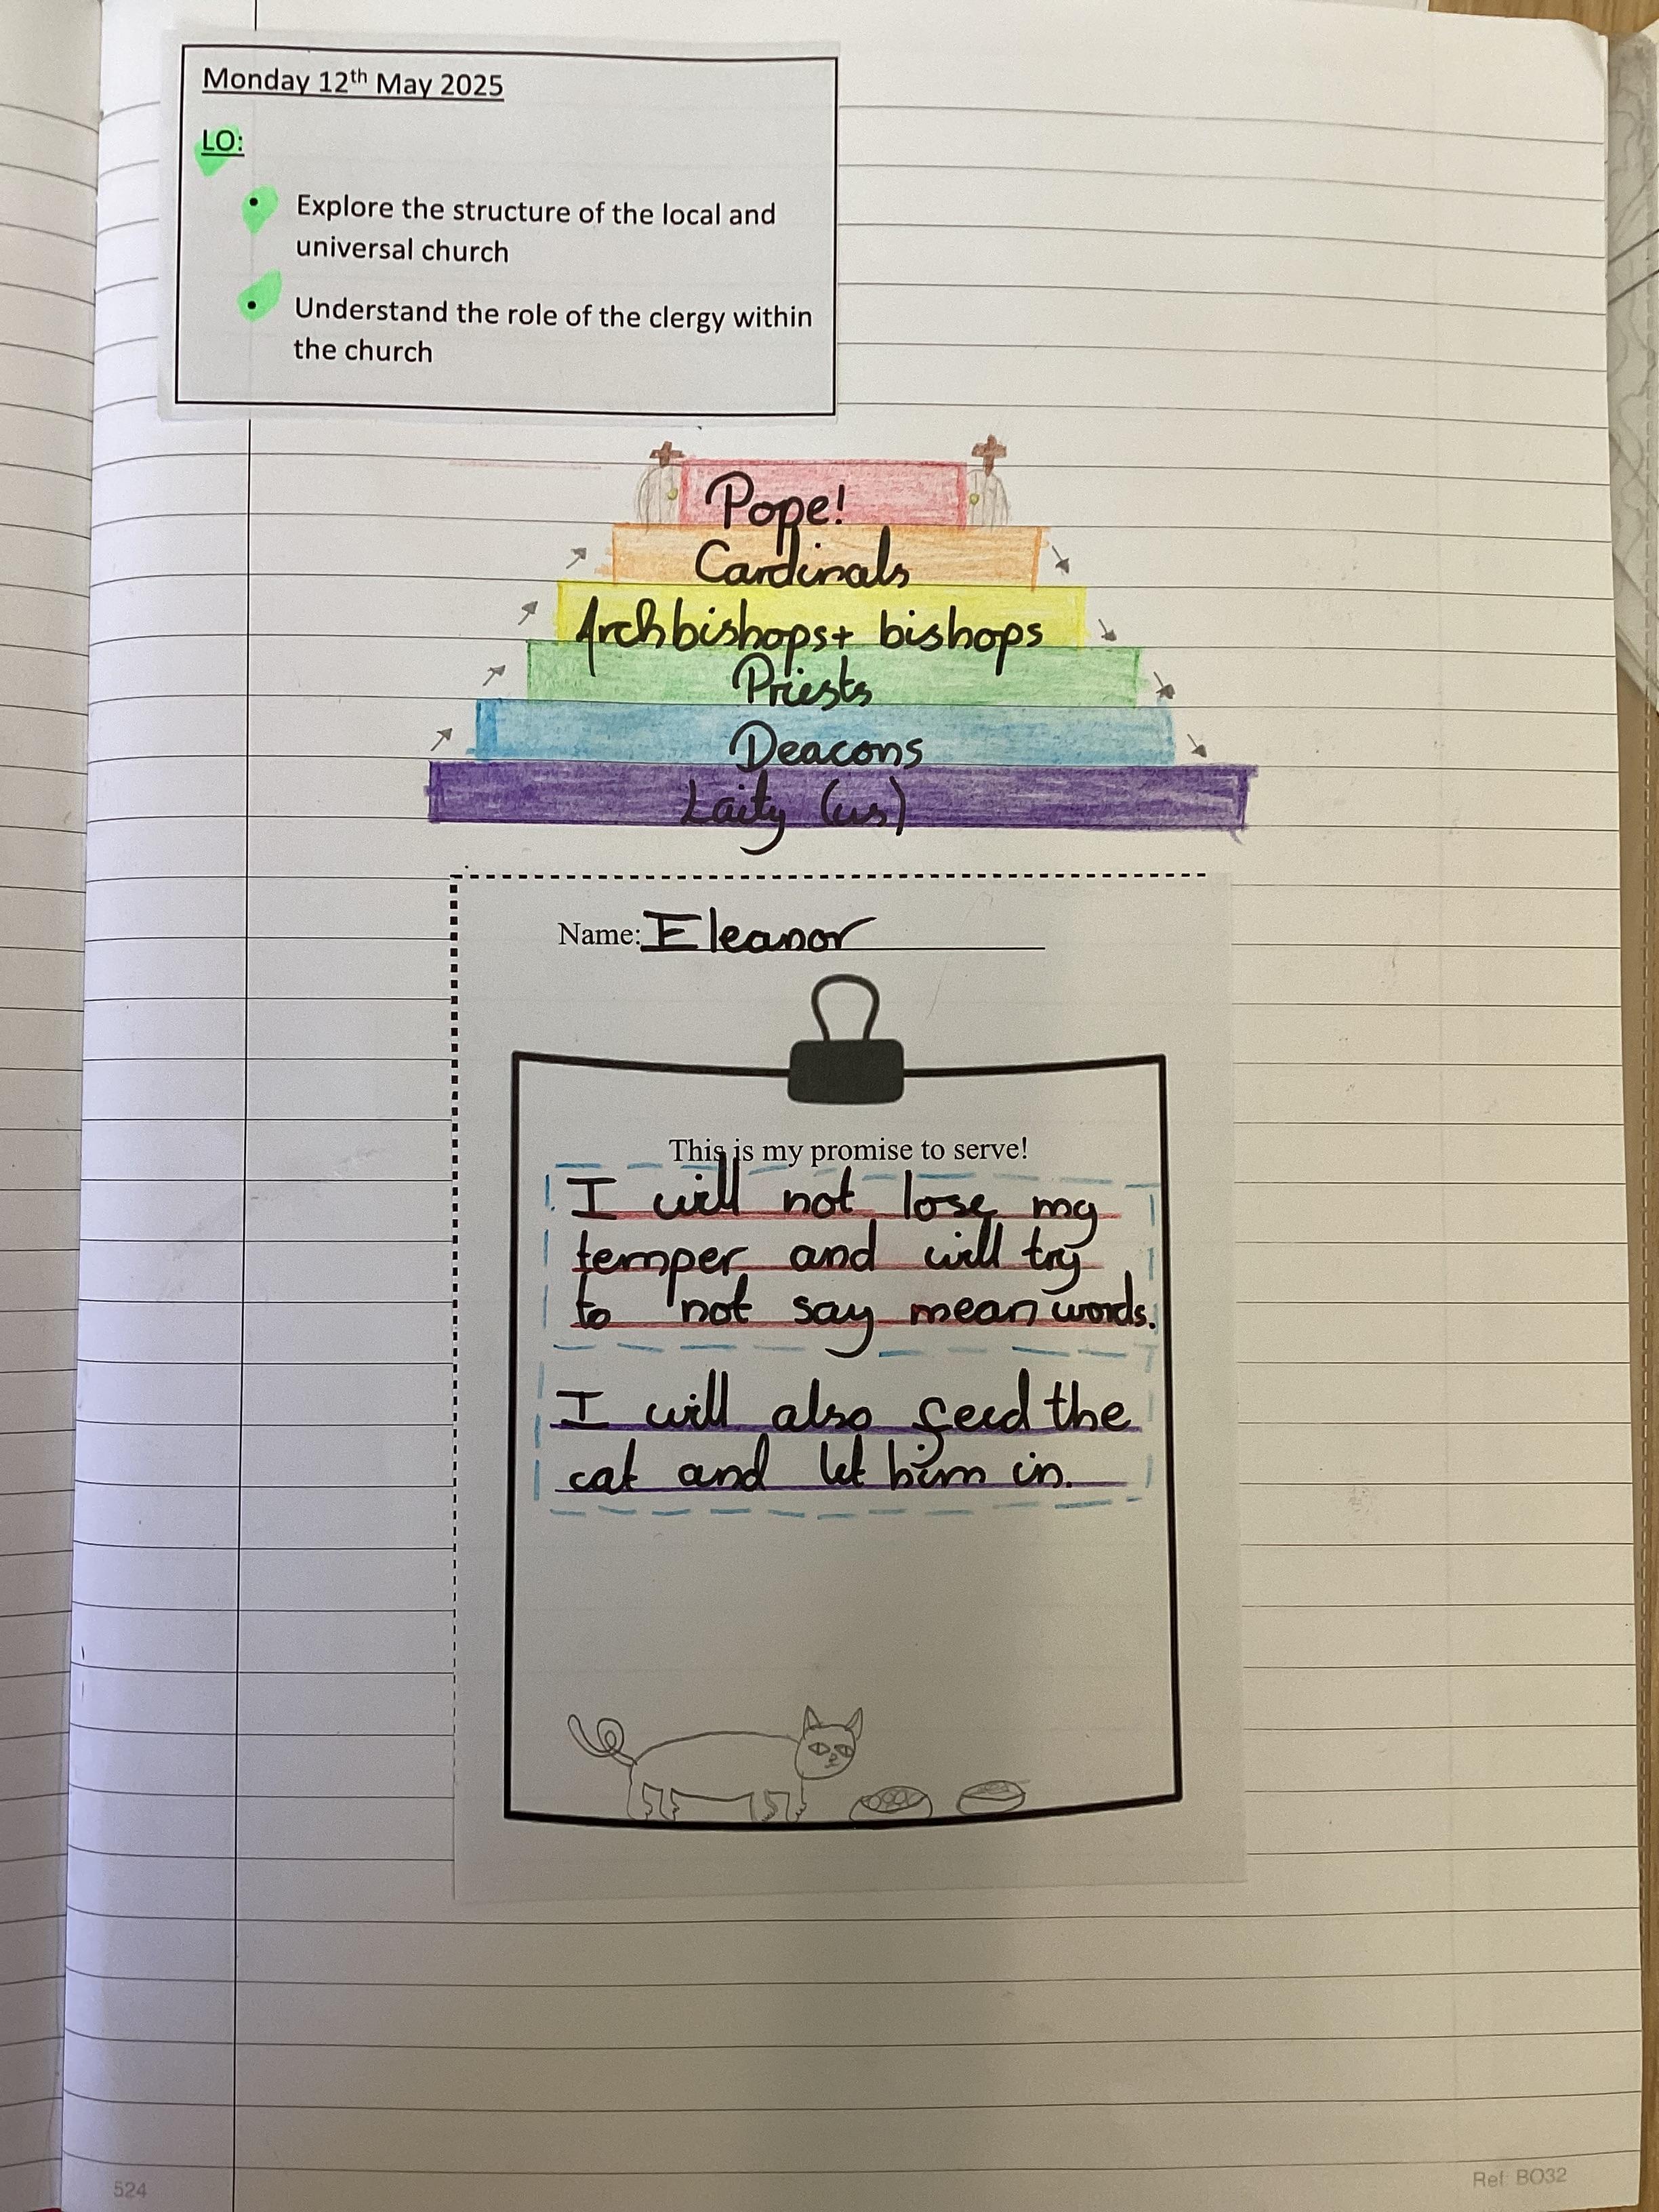 Monday 12th May 2025
LO:
• Explore the structure of the local and
universal church
• Understand the role of the clergy within
the church
Pope!
Cardinals
Archbishops+ bishops
Priests
Deacons
Laity (us)
Name: Eleanor
This is my promise to serve!
I will not lose my
temper and will try
to not say mean words.
I will also feed the
cat and let him in.
524
Ref: BO32